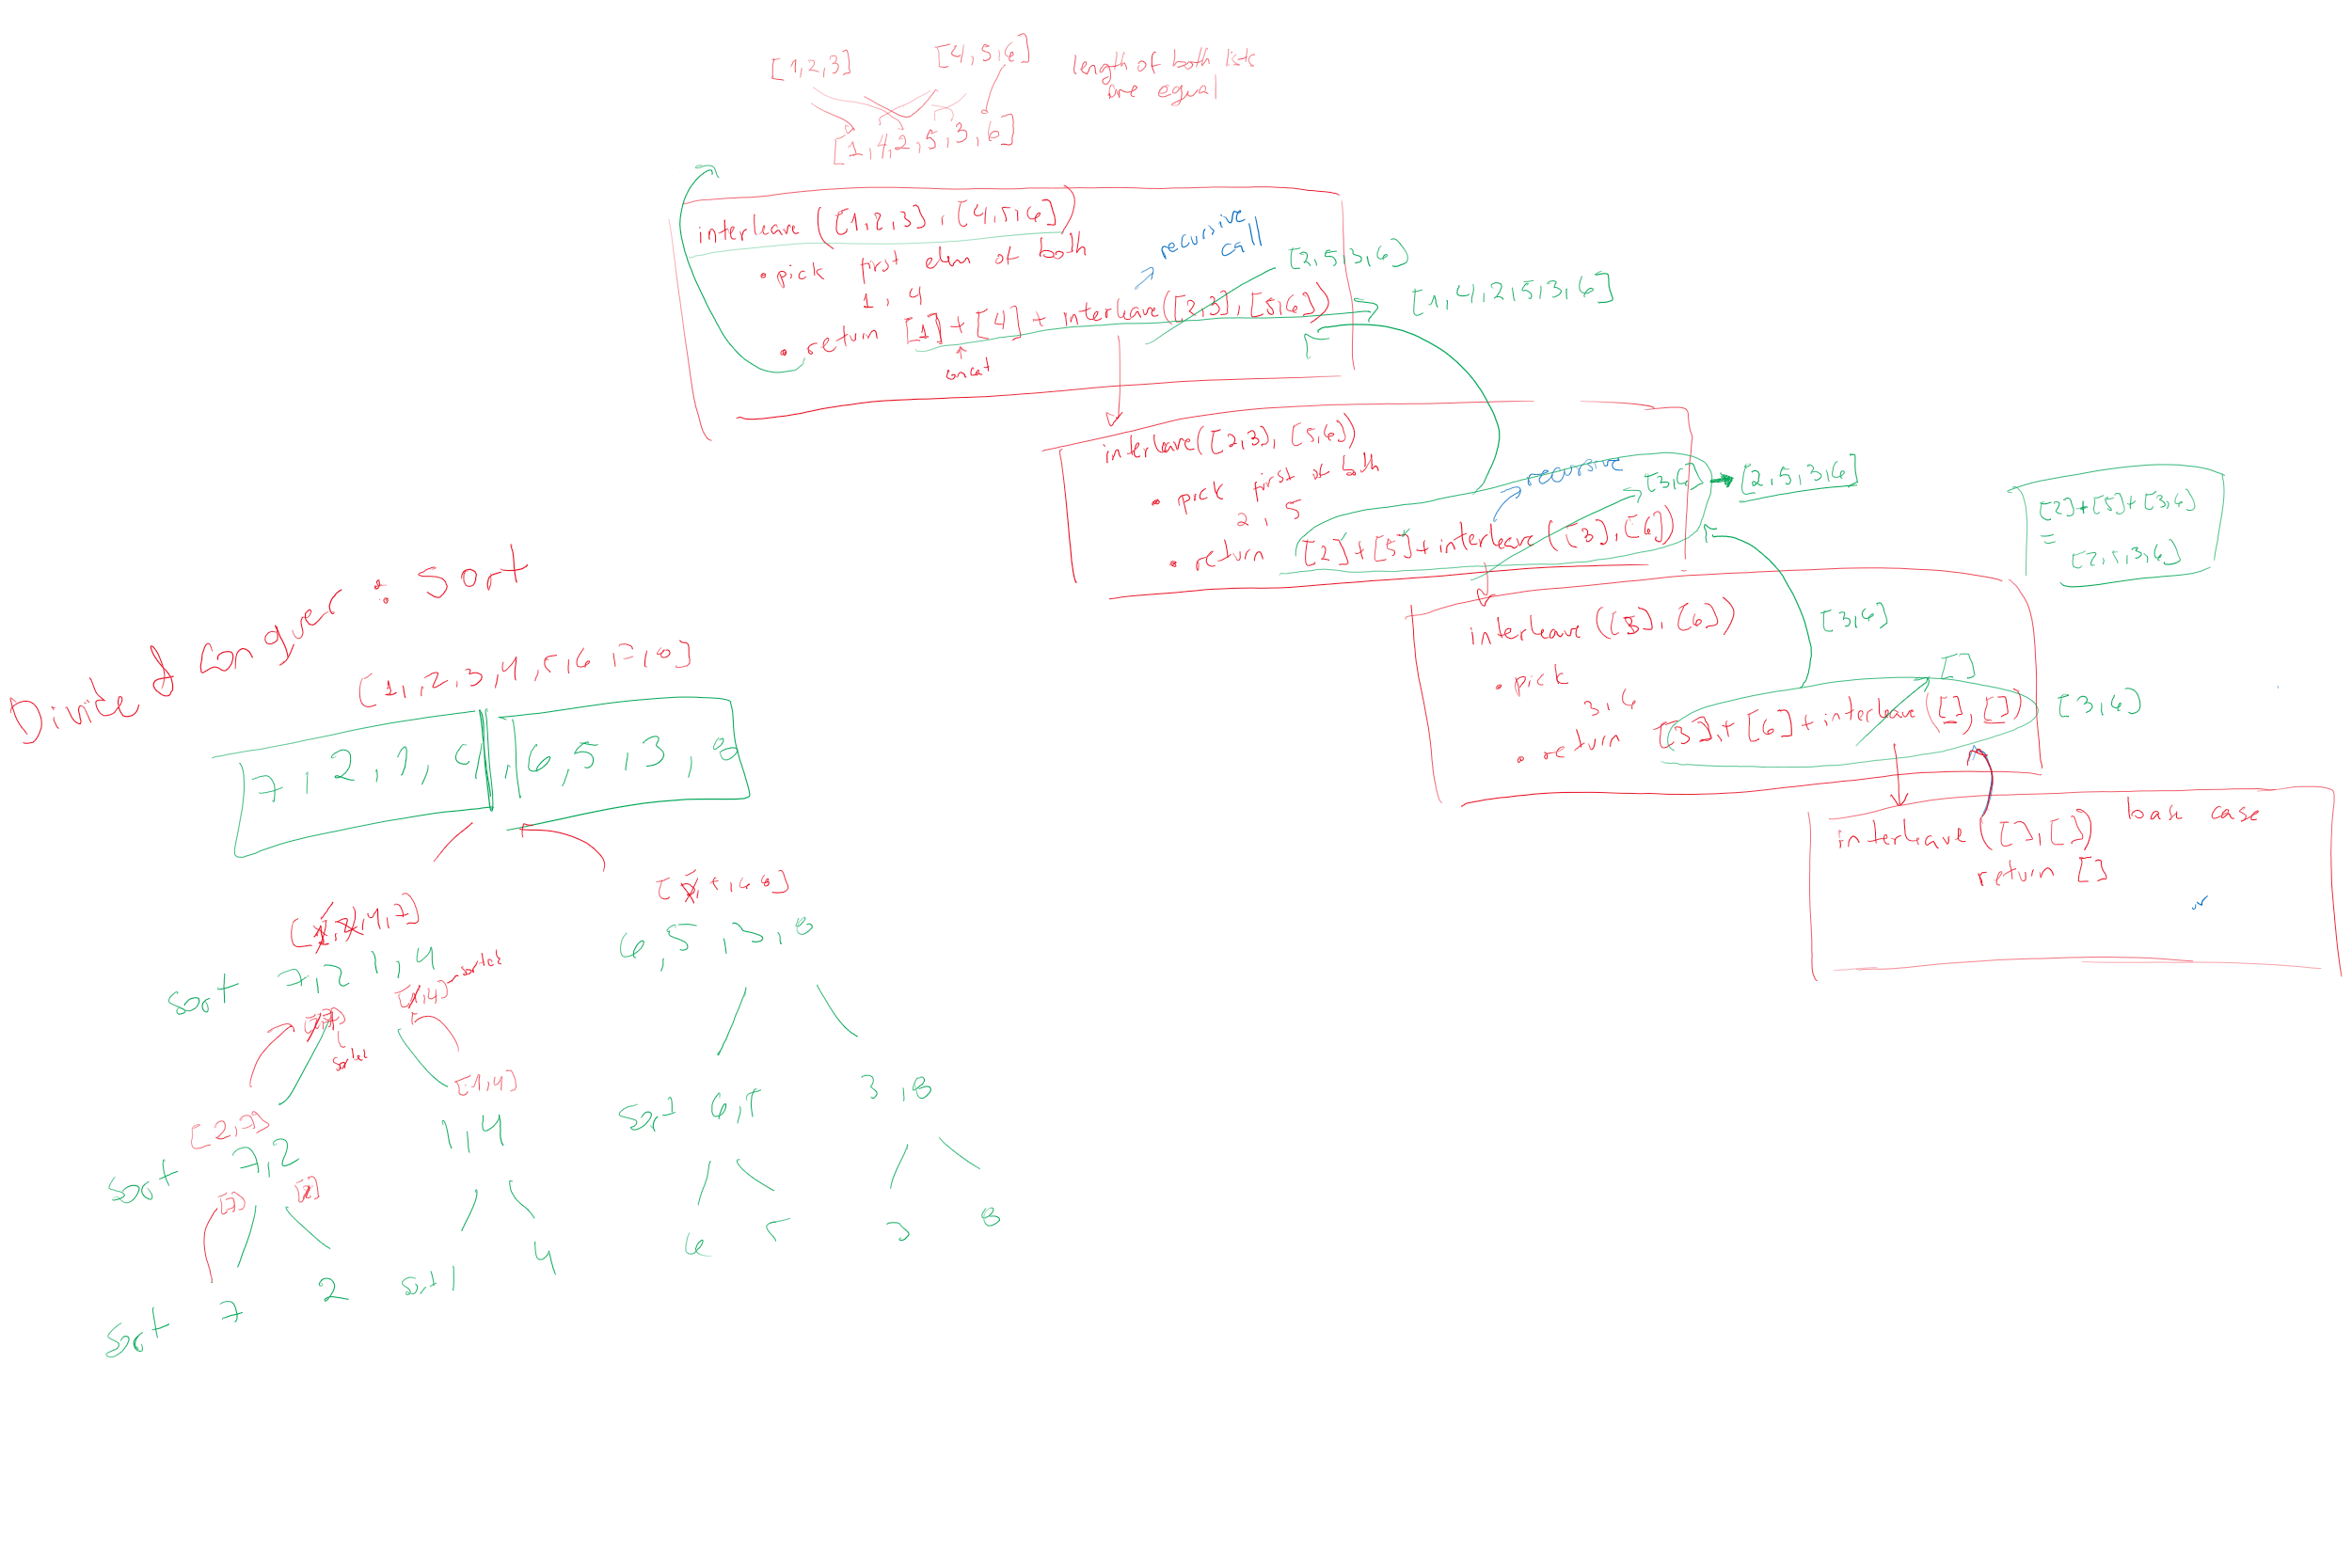 [1,2,3] [4,5,6] length of both lists
are equal
[1,4,2,5,3,6]
interleave([1,2,3],[4,5,6])
• pick first elem of both
1, 4
• return [1]+[4]+interleave([2,3],[5,6])
concat
recursive
call
[2,5,3,6]
[1,4,2,5,3,6]
interleave([2,3],[5,6])
• pick first of both
2, 5
• return [2]+[5]+interleave([3],[6])
recursive
[3,6] [2,5,3,6]
[2]+[5]+[3,6]
=
[2,5,3,6]
interleave([3],[6])
• pick
3,6
• return [3]+[6]+interleave([],[])
[3,6]
[]
[3,6]
interleave([],[]) base case
return []
Divide & Conquer : Sort
[1,2,3,4,5,6,7,8]
7,2,1,4,6,5,3,8
[1,2,4,7]
sort 7,2 1,4
[2,7]
sorted
[1,4] sorted
[2,7]
sort 7,2
[7] [2]
[1,4]
1,4
sort 7 2 sort 1 4
6,5,3,8
sort 6,5 3,8
6 5 3 8